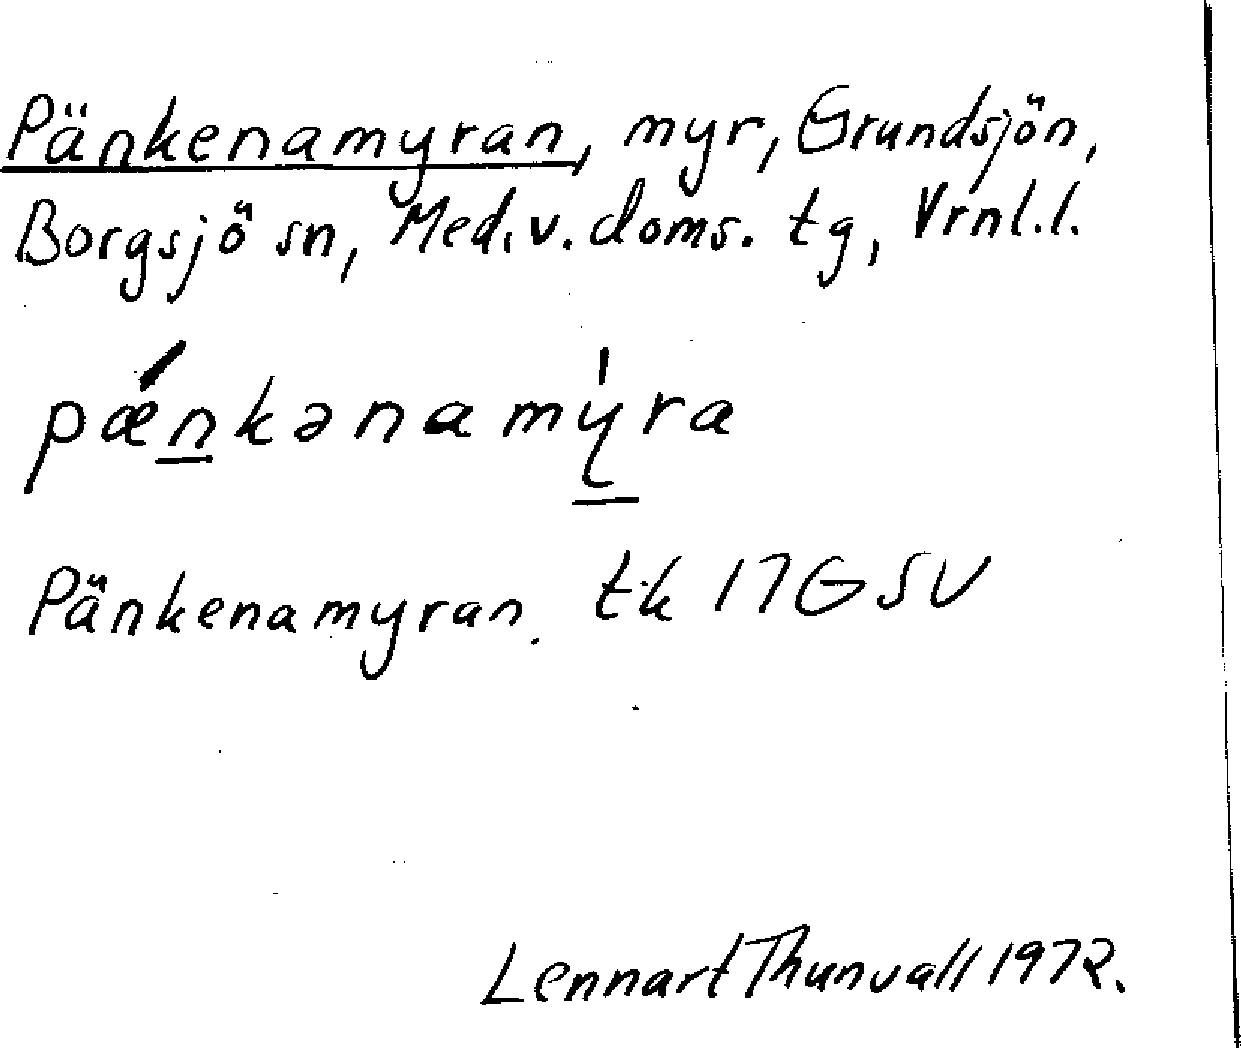 Pänkenamyran, myr, Grundsjön,
Borgsjö sn, Med. v. doms. tg, Vrnl. l.
pǽn̲kənamý̲ra
Pänkenamyran. tk 17G SV
Lennart Thunvall 1972.